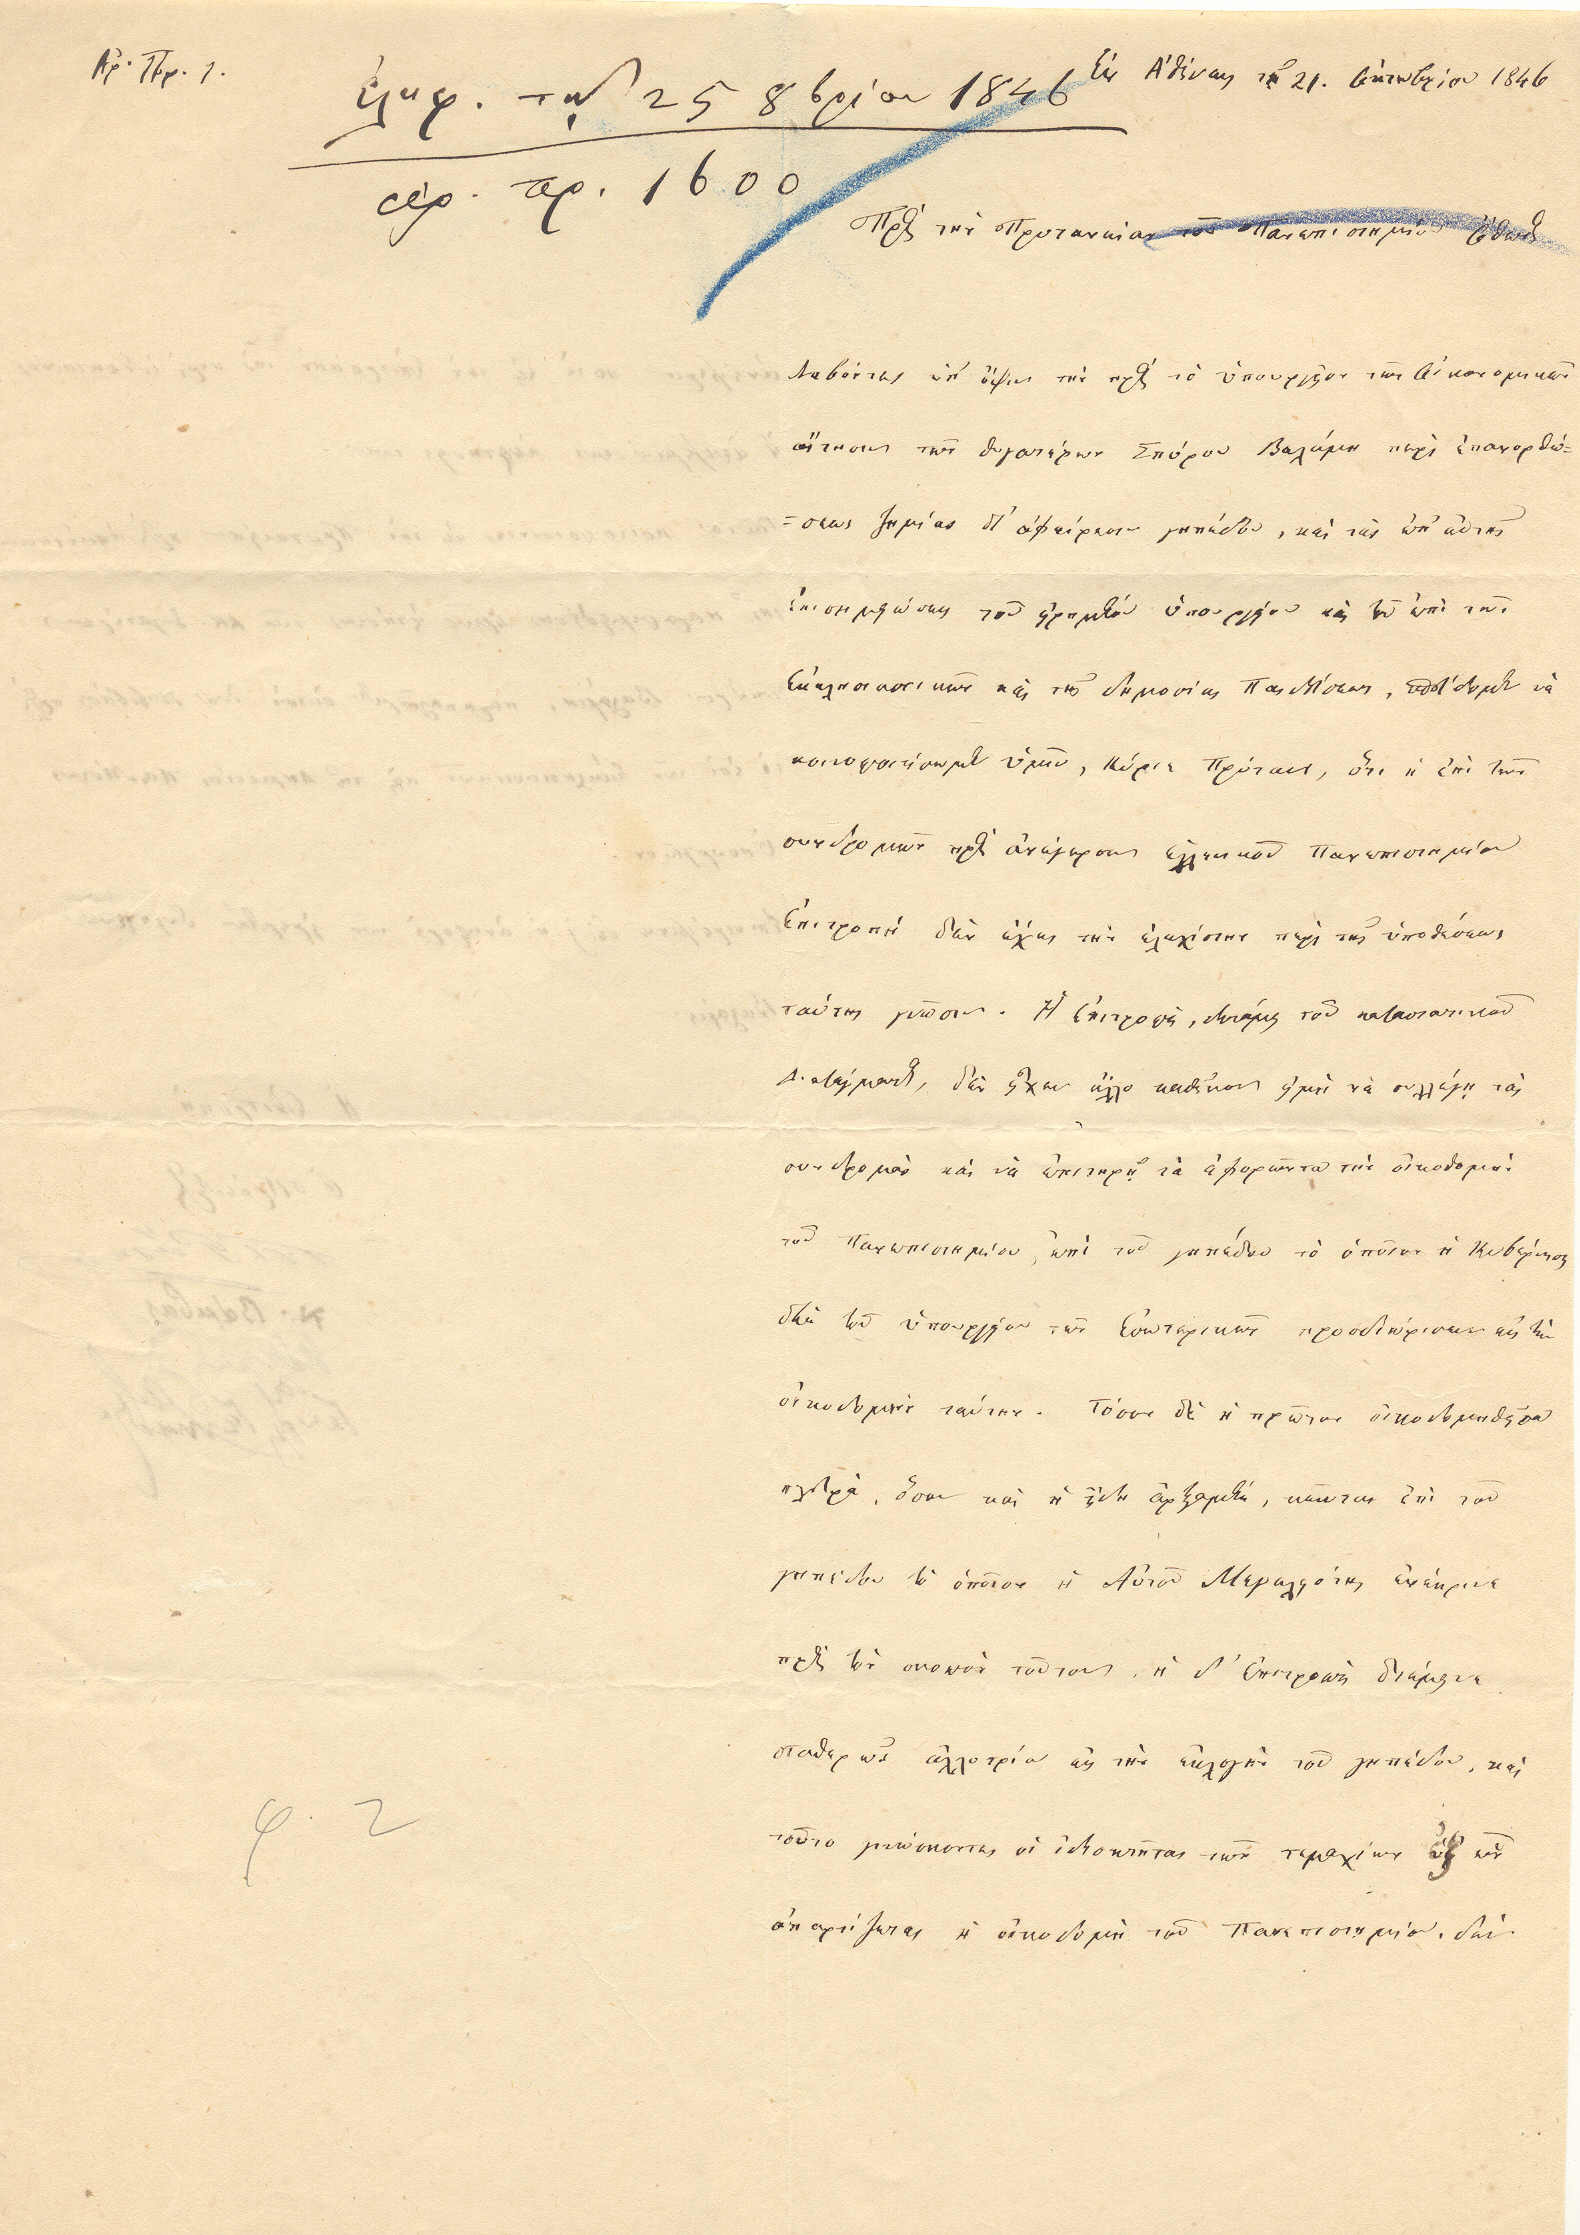 Ἀρ. Πρ. 1.
Ἐν Ἀθήναις τῇ 21. Ὀκτωβρίου 1846
ἐλήφ. τῇ 25 8βρίου 1846
ἀρ. πρ. 1600
Πρὸς τὴν Πρυτανείαν τοῦ Πανεπιστημίου Ὄθωνος
Λαβόντες ὑπ' ὄψιν τὴν πρὸς τὸ ὑπουργεῖον τῶν Οἰκονομικῶν
αἴτησιν τῶν θυγατέρων Σπύρου Βαλάμη περὶ ἐπανορθώ=
=σεως ζημίας δι' ἀφαίρεσιν γηπέδου, καὶ τὰς ἐπ' αὐτῆς
ἐπισημειώσεις τοῦ εἰρημένου ὑπουργείου καὶ τοῦ ἐπὶ τῶν
Ἐκκλησιαστικῶν καὶ τῆς δημοσίας Παιδεύσεως, σπεύδομεν νὰ
κοινοποιήσωμεν ὑμῖν, Κύριε Πρύτανι, ὅτι ἡ ἐπὶ τῶν
συνδρομῶν πρὸς ἀνέγερσιν ἑλληνικοῦ Πανεπιστημίου
Ἐπιτροπὴ δὲν ἔχει τὴν ἐλαχίστην περὶ τῆς ὑποθέσεως
ταύτης γνῶσιν. Ἡ Ἐπιτροπὴ, δυνάμει τοῦ καταστατικοῦ
Διατάγματος, δὲν εἶχεν ἄλλο καθῆκον εἰμὴ νὰ συλλέγῃ τὰς
συνδρομὰς καὶ νὰ ἐπιτηρῇ τὰ ἀφορῶντα τὴν οἰκοδομὴν
τοῦ Πανεπιστημίου, ἐπὶ τοῦ γηπέδου τὸ ὁποῖον ἡ Κυβέρνησις
διὰ τοῦ ὑπουργείου τῶν Ἐσωτερικῶν προσδιώρισεν εἰς τὴν
οἰκοδομὴν ταύτην. Τόσον δὲ ἡ πρῶτον οἰκοδομηθεῖσα
πλευρὰ, ὅσον καὶ ἡ ἤδη ἀρξαμένη, κεῖνται ἐπὶ τοῦ
γηπέδου τὸ ὁποῖον ἡ Αὐτοῦ Μεγαλειότης ἐνέκρινε
πρὸς τὸν σκοπὸν τοῦτον, ἡ δ' Ἐπιτροπὴ διέμεινε
σταθερῶς ἀλλοτρία εἰς τὴν ἐκλογὴν τοῦ γηπέδου, καὶ
τοῦτο γινώσκοντες οἱ ἰδιοκτῆται τῶν τεμαχίων ἐξ ὧν
ἀπαρτίζεται ἡ οἰκοδομὴ τοῦ Πανεπιστημίου, δὲν
φ. 2